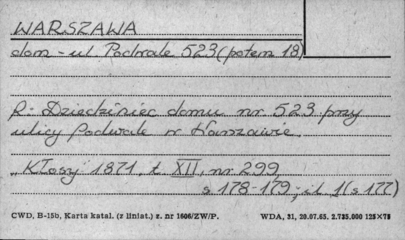 WARSZAWA
dom - ul. Podwale 523 (potem 18)
R: Dziedziniec domu nr. 523 przy
ulicy Podwale w Warszawie.
"Kłosy" 1871, t. XII, nr 299,
s 178-179; il. 1 (s 177)
CWD, B-15b, Karta katal. (z liniat.) z. nr 1606/ZW/P. WDA, 31, 20.07.65. 2.735.000 125×75